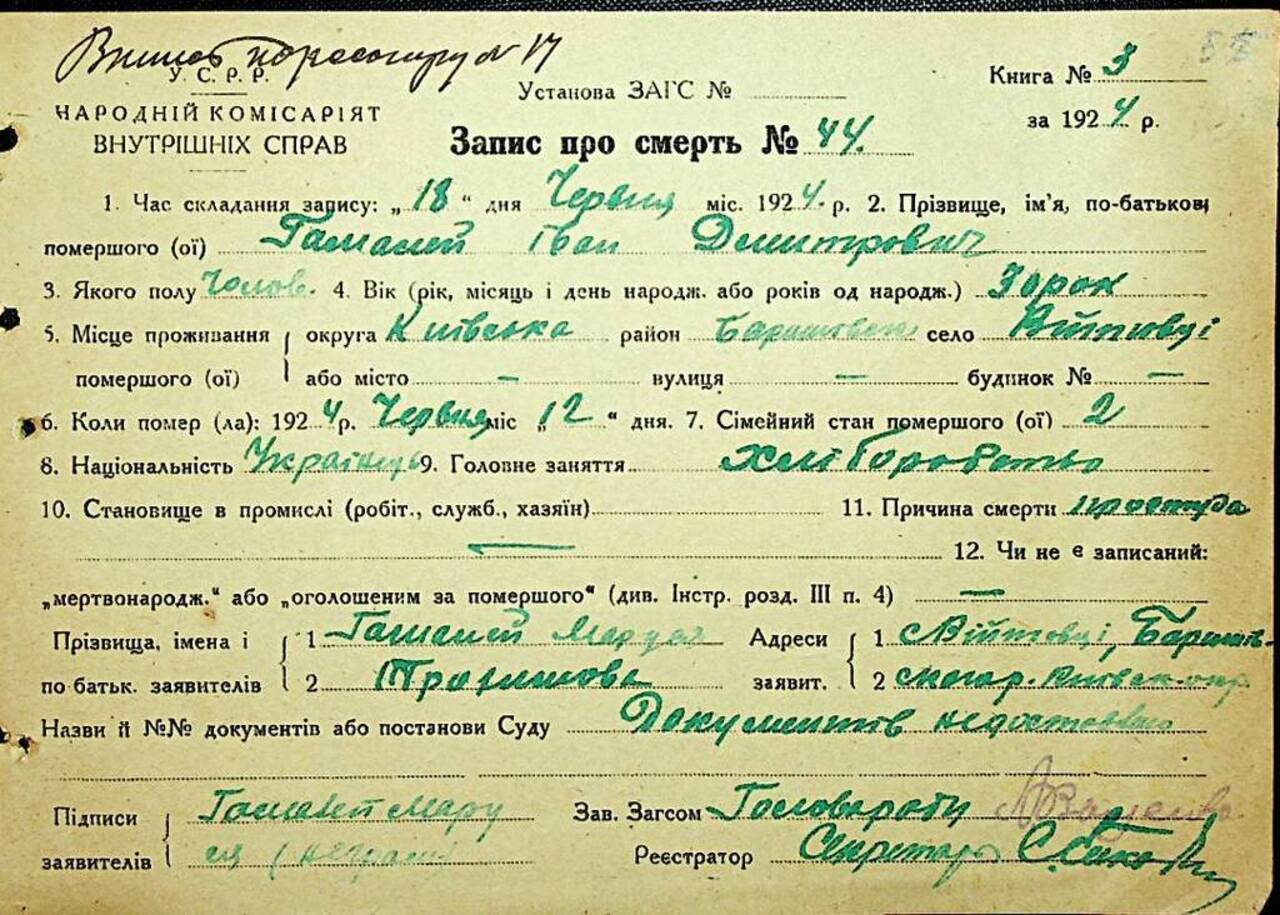 У. С. Р. Р. Установа ЗАГС № Книга № 3
НАРОДНІЙ КОМІСАРІЯТ за 1924 р.
ВНУТРІШНІХ СПРАВ Запис про смерть № 44.
1. Час складання запису: „18“ дня Червня міс. 1924 р. 2. Прізвище, ім'я, по-батькові
помершого (ої) Гаманей Іван Димитрович
3. Якого полу Чолов. 4. Вік (рік, місяць і день народж. або років од народж.)
5. Місце проживання округа Київська район село Війтівці
помершого (ої) або місто — вулиця — будинок № —
6. Коли помер (ла): 1924 р. Червня міс „12“ дня. 7. Сімейний стан помершого (ої) 2
8. Національність Українець 9. Головне заняття Хліборобство
10. Становище в промислі (робіт., служб., хазяїн) 11. Причина смерти простуда
— 12. Чи не є записаний:
„мертвонародж.“ або „оголошеним за помершого“ (див. Інстр. розд. III п. 4) —
Прізвища, імена і 1 Гаманей Адреси 1 Війтовці,
по батьк. заявителів 2 заявит. 2
Назви й №№ документів або постанови Суду Документів
Підписи Зав. Загсом
заявителів Реєстратор Секретарь